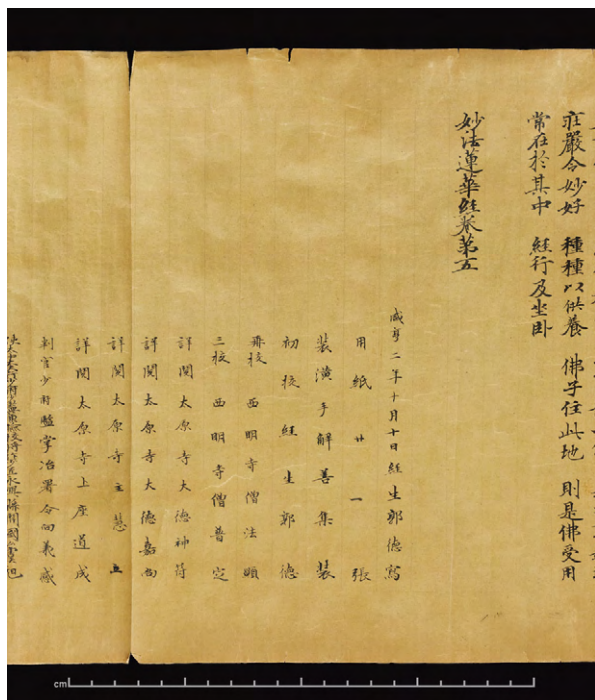 莊嚴令妙好 種種以供養 佛子住此地 則是佛受用
常在於其中 經行及坐臥
妙法蓮華經卷第五
咸亨二年十月十日經生郭德寫
用紙廿一張
裝潢手解善集裝
初校經生郭德
再校西明寺僧法顯
三校西明寺僧普定
詳閱太原寺大德神符
詳閱太原寺大德嘉尚
詳閱太原寺主慧立
詳閱太原寺上座道成
判官少府監掌冶署令向義感
永興縣開國公虞昶
cm